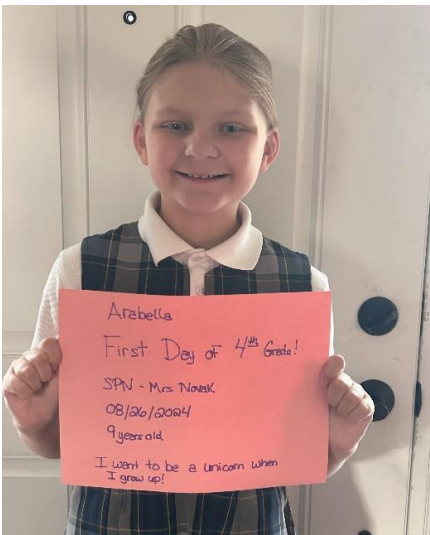 Arabella
First Day of 4th Grade!
SPN - Mrs Novak
08/26/2024
9 years old
I want to be a unicorn when
I grow up!